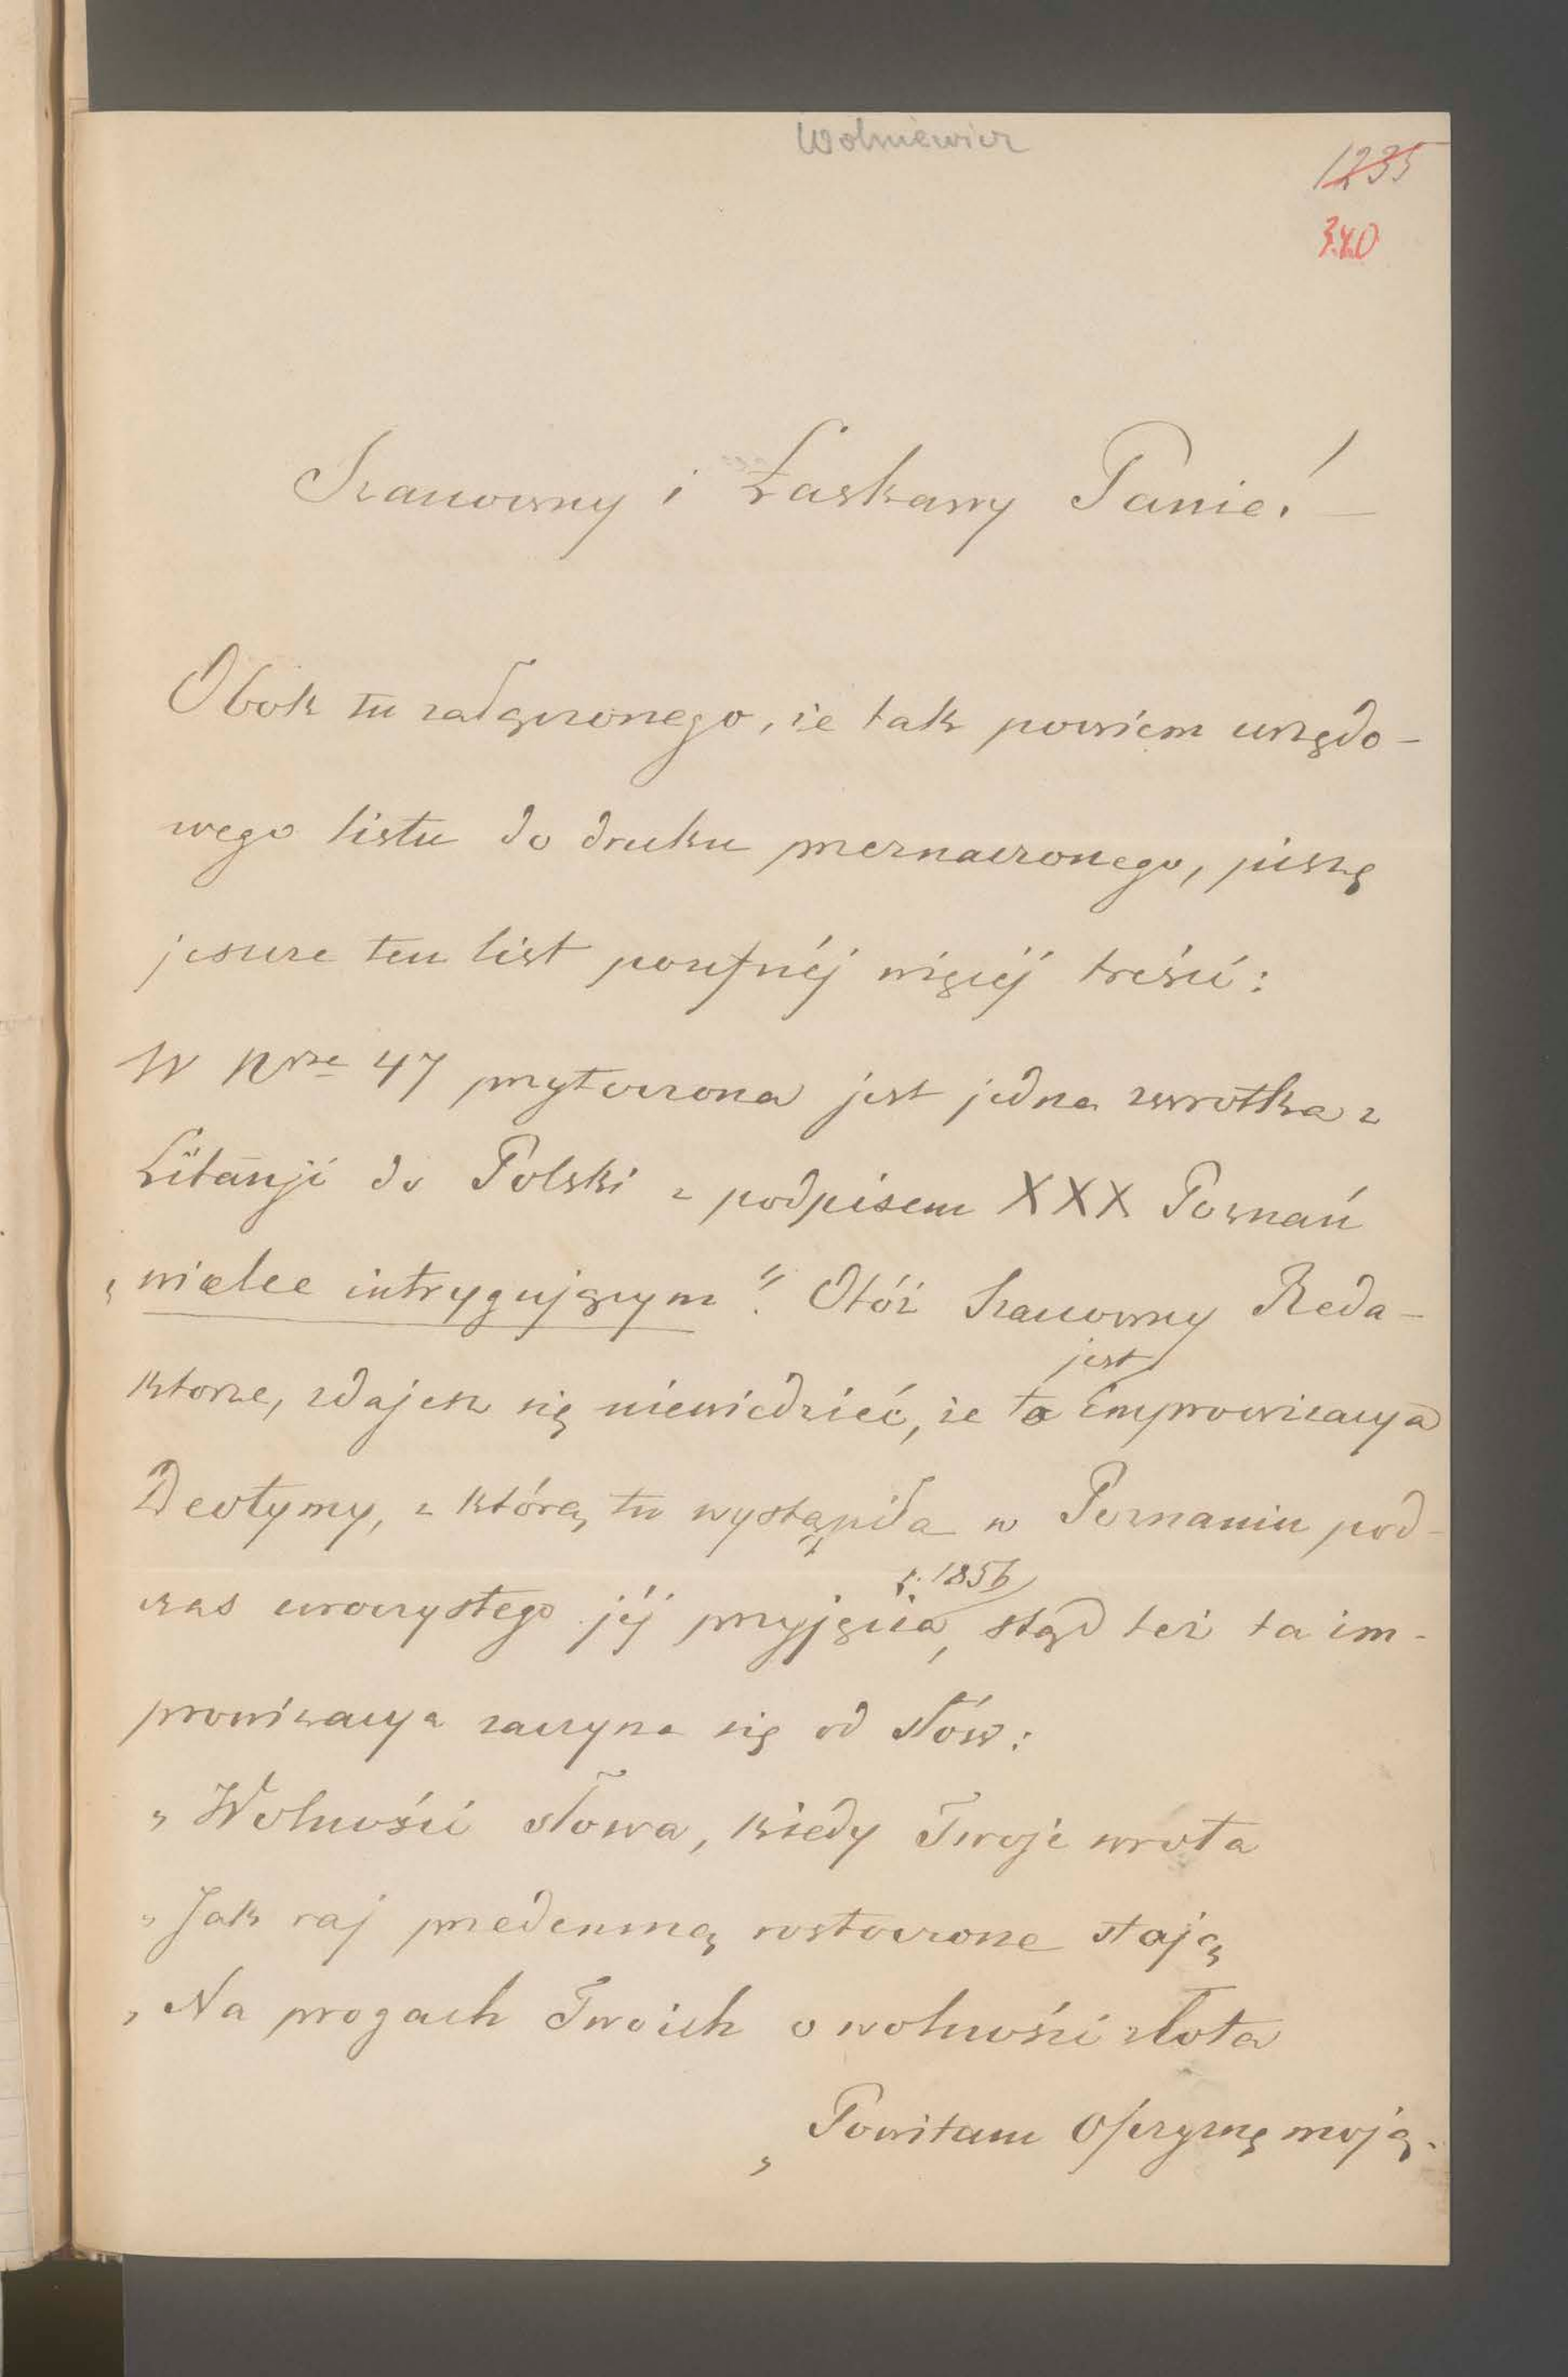 Wolniewicz
1235
340
Szanowny i Łaskawy Panie! —
Obok tu załączonego, że tak powiem urzędo-
wego listu do druku przeznaczonego, piszę
jeszcze ten list poufnéj więcéj treści:
W Nrze 47 przytoczona jest jedna zwrotka z
Litanji do Polski z podpisem XXX Poznań
„wielce intrygującym". Otóż Szanowny Reda-
jest
ktorze, zdajesz się niewiedzieć, że to improwizacya
Deotymy, z którą tu wystąpiła w Poznaniu pod-
r. 1856
czas uroczystego jéj przyjęcia, stąd też ta im-
prowizacya zaczyna się od słów:
„Wolności słowa, kiedy Twoje wrota
„Jak raj przedemną roztoczone stają
„Na progach Twoich o wolności złota
„Powitam Ojczyznę moją.